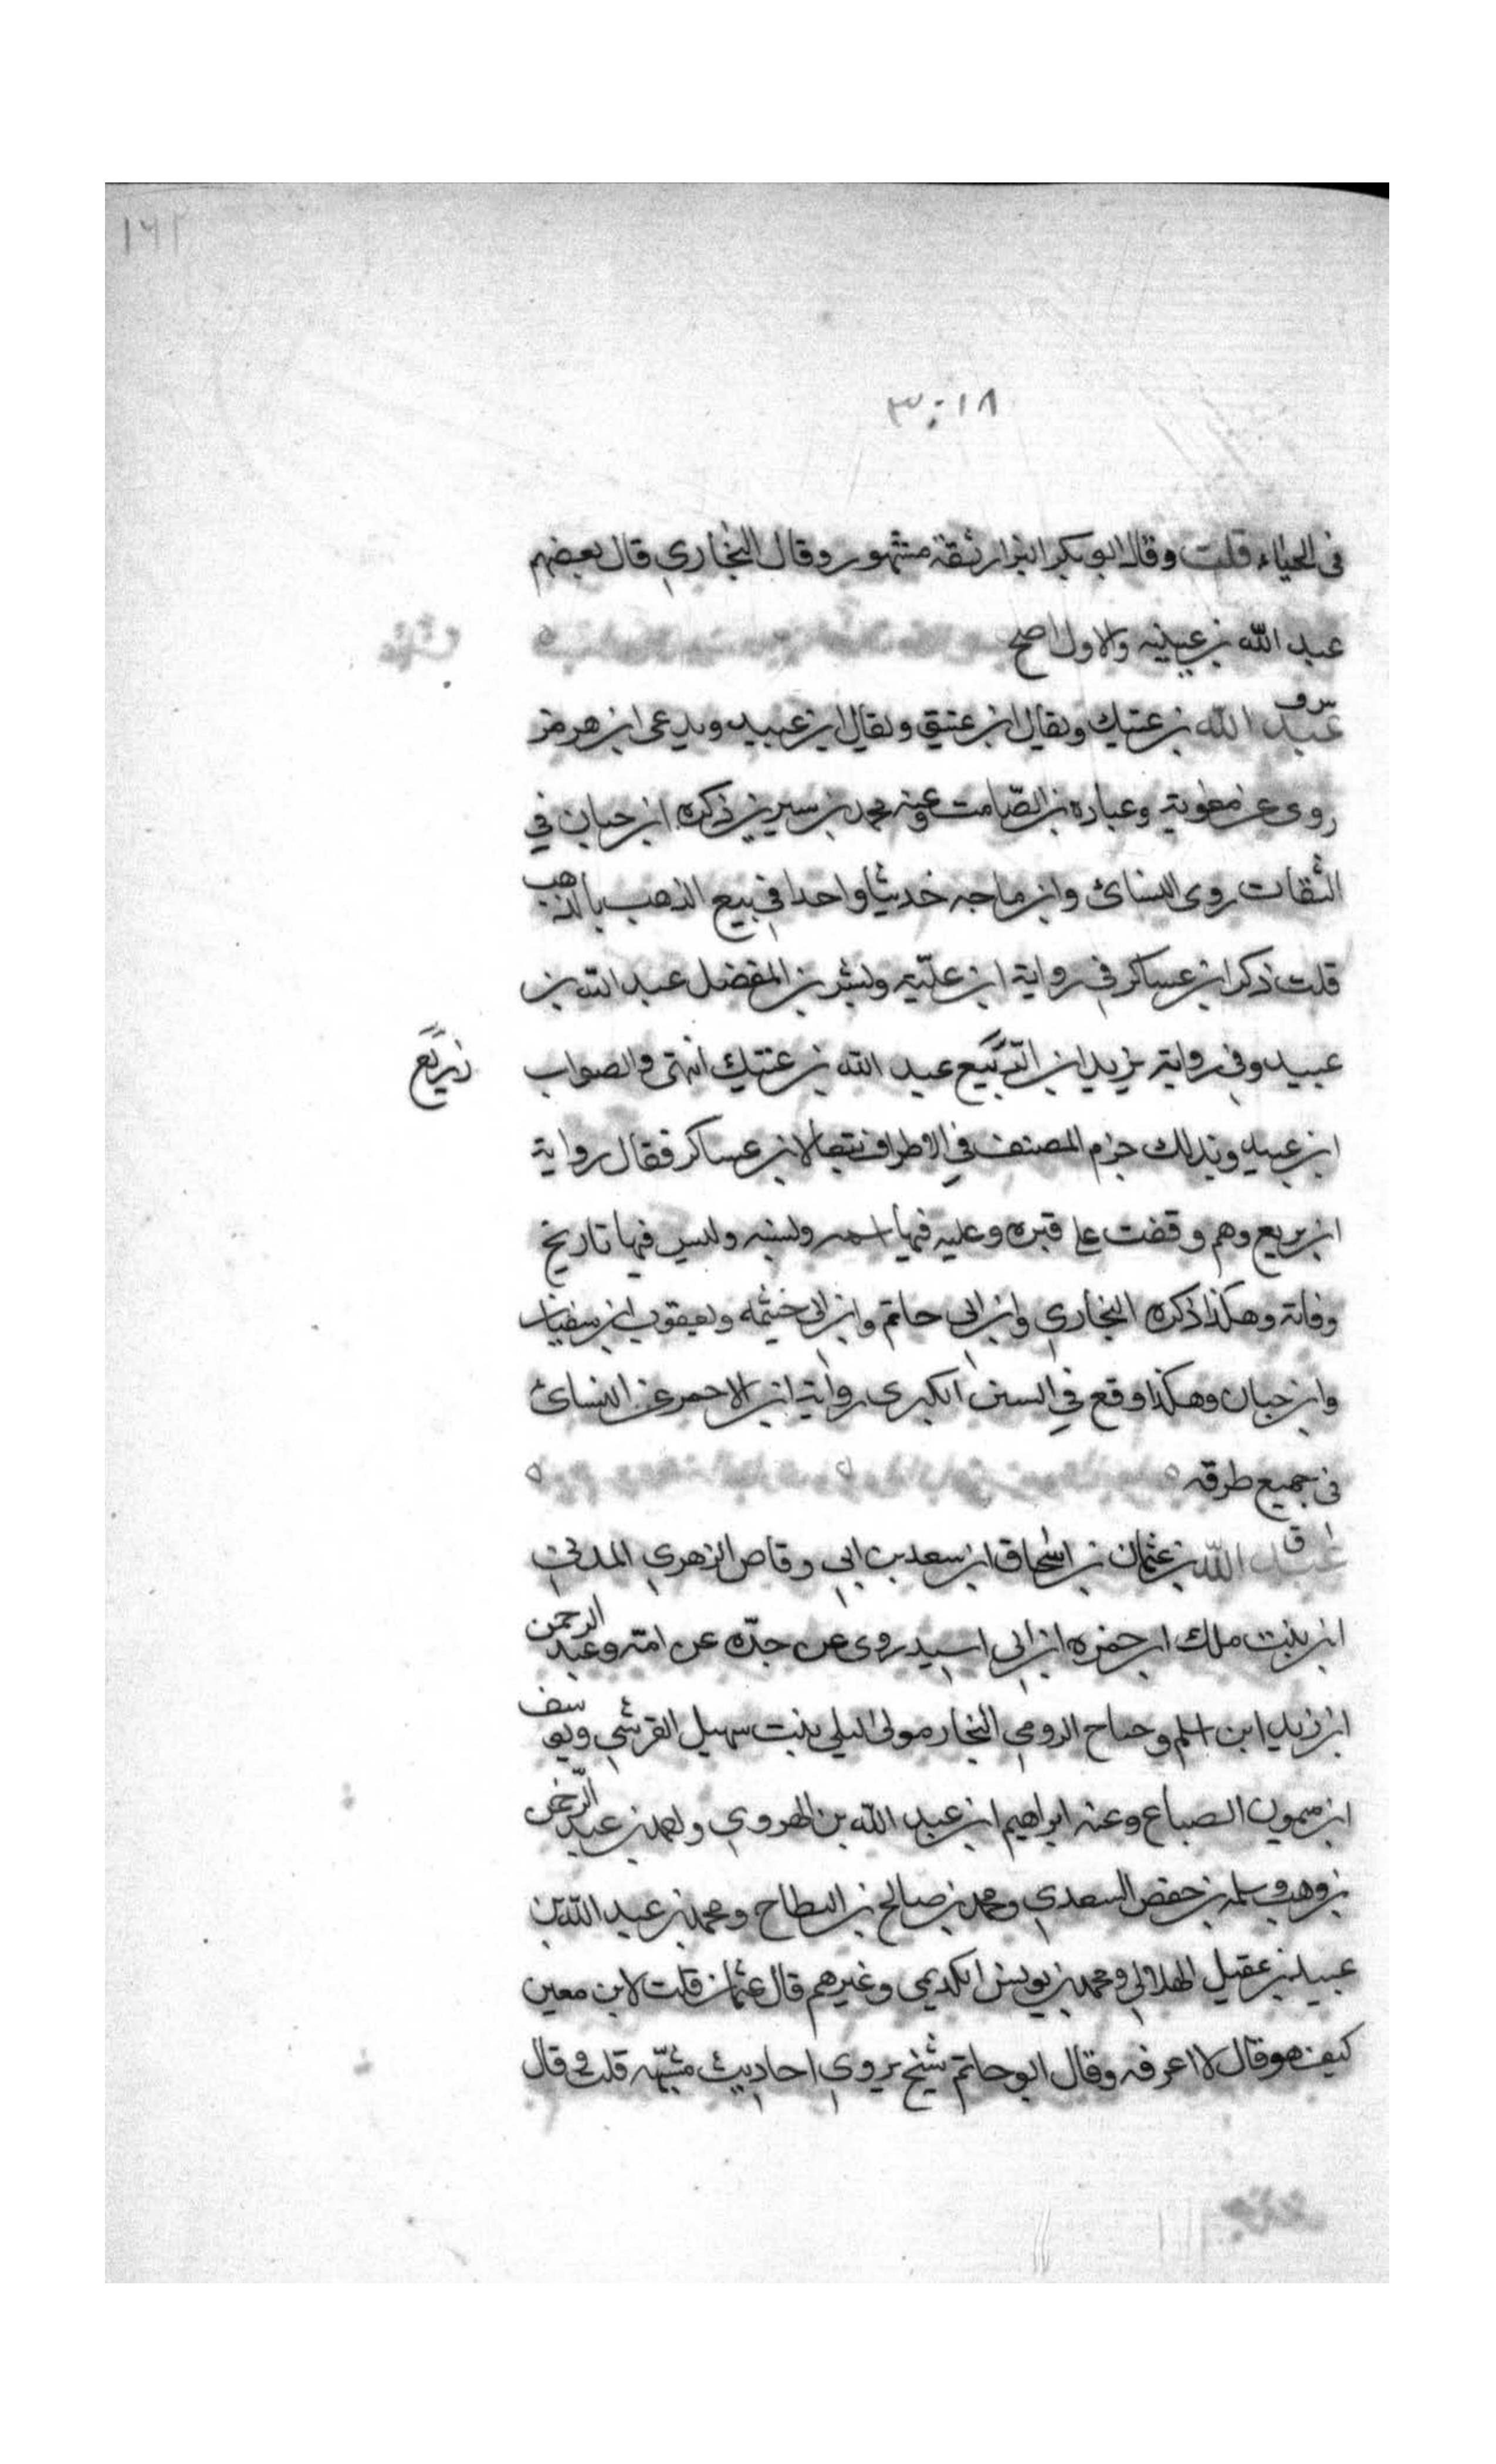 ١٦٢
٣٠١٨
فى الحياء قلت وقال ابو بكر البزار ثقة مشهور وقال البخاري قال بعضهم
عبد الله بن عيينه والاول اصح
س ق
عبد الله بن عتيك ويقال ابن عتيق ويقال ابن عبيد ويدعى ابن هرمز
روى عن معوية وعباده بن الصّامت وعنه محمد بن سيرين ذكره ابن حبان في
الثقات روى النسائ وابن ماجه حديثا واحدا في بيع الذهب بالذهب
قلت ذكر ابن عساكر في رواية ابن عليّه وبشر بن المفضل عبد الله بن
عبيد وفي رواية يزيد ابن الربيع عبد الله بن عتيك انتهى والصواب
زريع
ابن عبيد وبذلك جزم المصنف في الاطراف تبعا لابن عساكر فقال رواية
ابن بريع وهم وقفت على قبره وعليه فيها اسمه ونسبه وليس فيها تاريخ
وفاته وهكذا ذكره البخاري وابن ابى حاتم وابن ابى خيثمه ويعقوب ابن سفيان
وابن حبان وهكذا وقع في السنن الكبرى رواية ابن الاحمر عن النسائ
فى جميع طرقه
ق
عبد الله بن عثمان بن اسحاق ابن سعد بن ابي وقاص الزهري المدني
ابن بنت ملك ابن حمزه ابن ابى اسيد روى عن جدّه عن امه وعبد الرحمن
ابن زيد ابن اسلم وحباح الرومي النجار مولى ليلى بنت سهيل القرشي ويوسف
ابن ميمون الصباع وعنه ابراهيم ابن عبد الله بن الهروي واحمد بن عبد الرحمن
بن وهب وسلمه بن حفص السعدي ومحمد بن صالح بن البطاح ومحمد بن عبد الله بن
عبيد بن عقيل الهلالي ومحمد بن يونس الكديمى وغيرهم قال عثمان قلت لابن معين
كيف هو قال لا اعرفه وقال ابو حاتم شيخ يروي احاديث مشبّهه قلت وقال